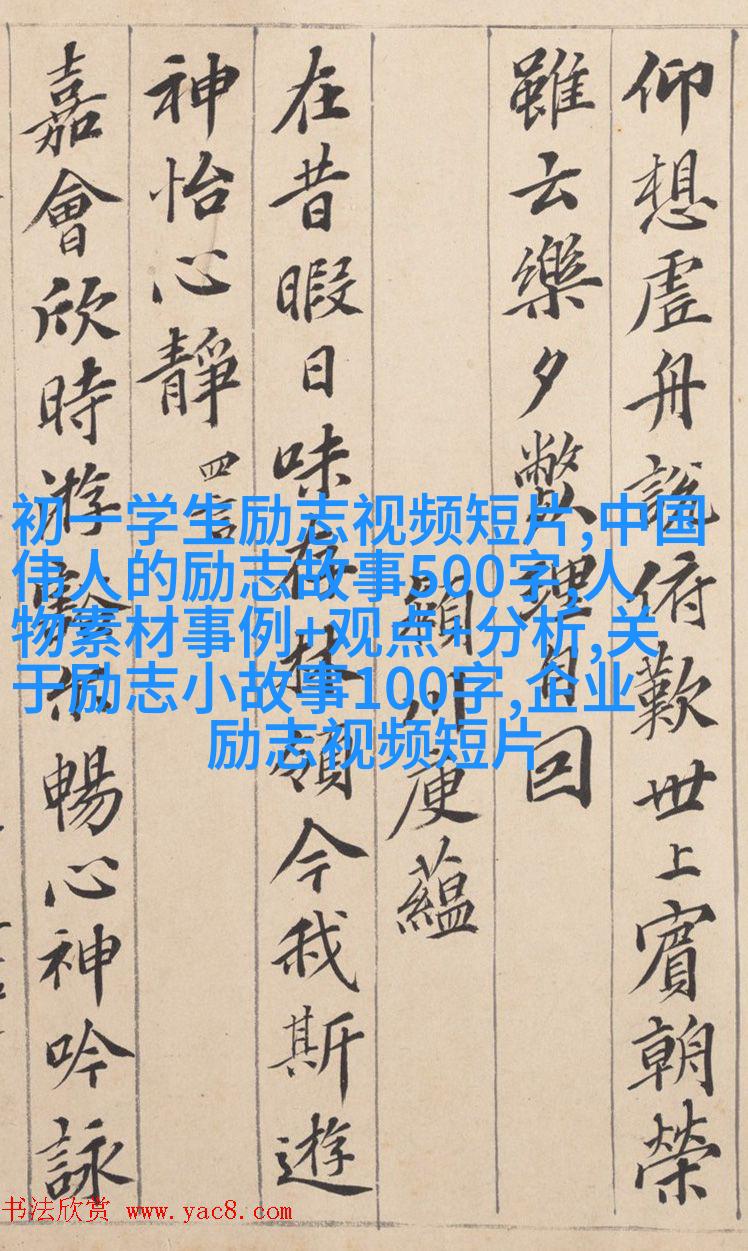 仰想虗舟說俯歎世上賓朝榮
雖云樂夕弊理自回
頴川庾蘊
在昔暇日味存林嶺今我斯遊
神怡心靜 四言
嘉會欣時游豁尒暢心神吟詠
初一学生励志视频短片,中国
伟人的励志故事500字,人
物素材事例+观点+分析,关
于励志小故事100字,企业
励志视频短片
书法欣赏 www.yac8.com